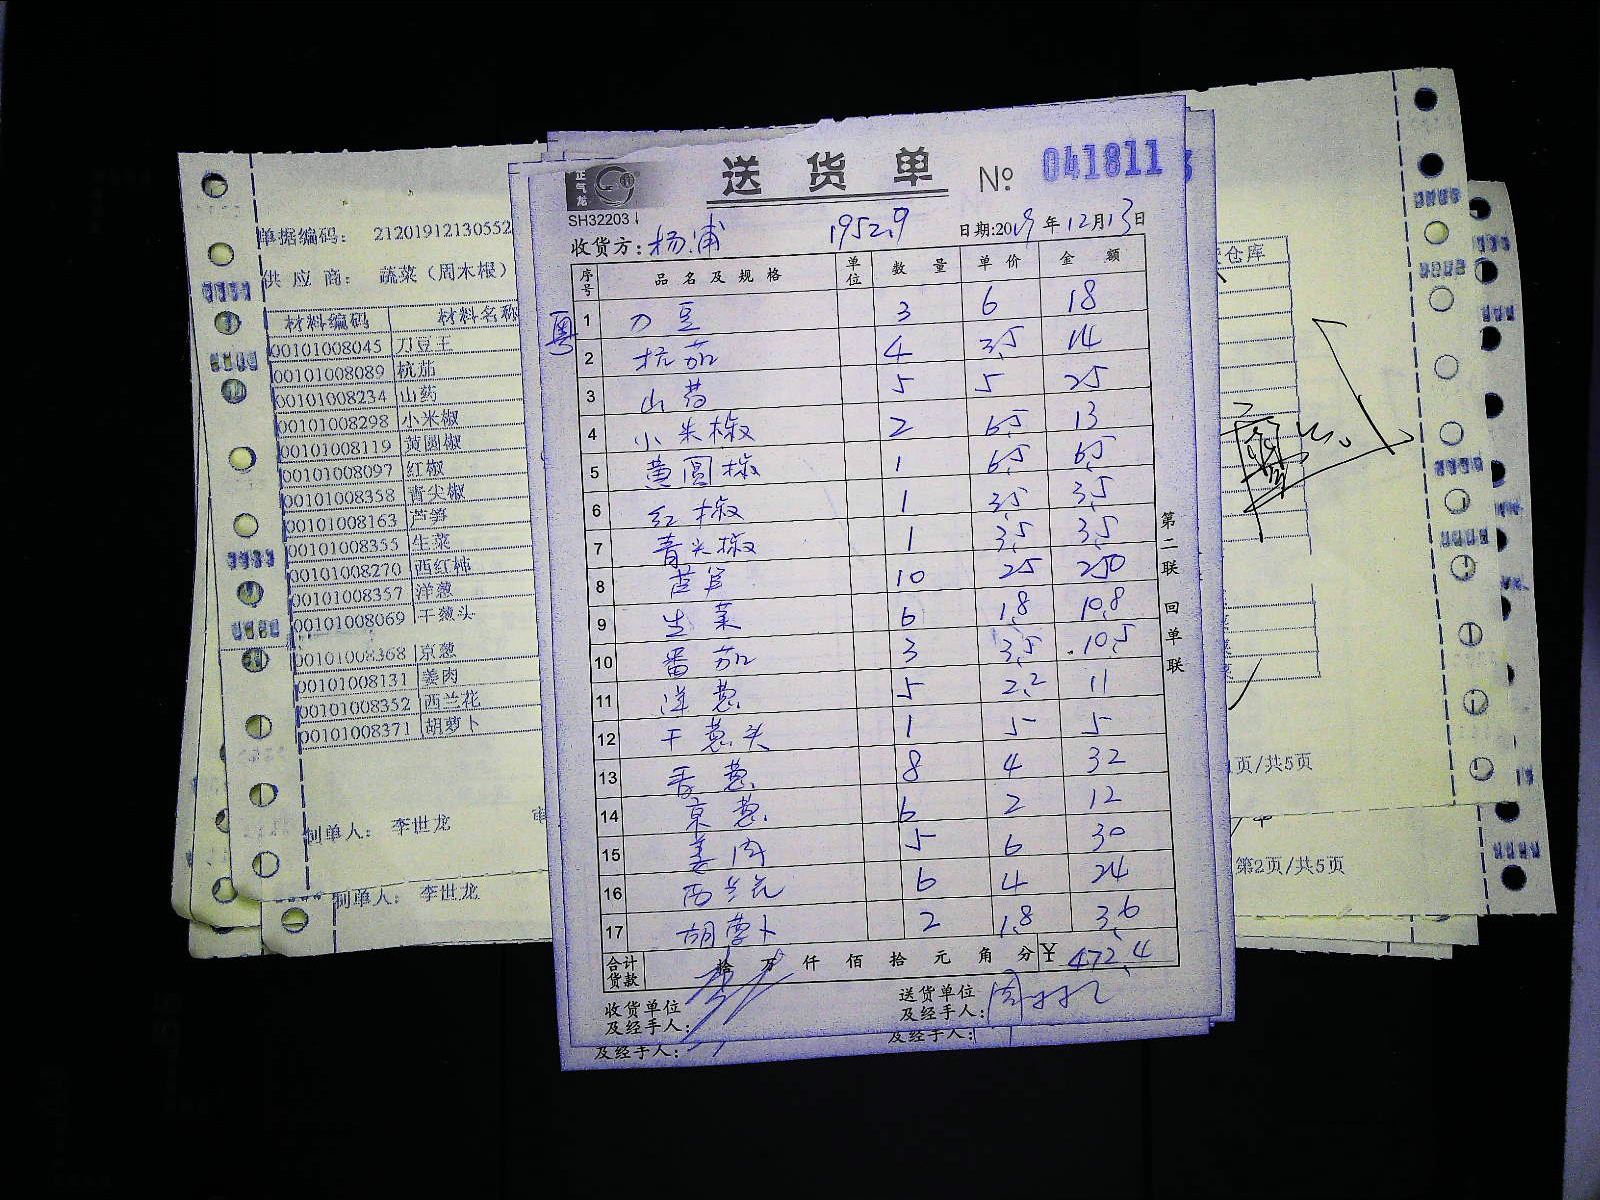 送货单 № 041811
正气龙
SH32203
收货方：杨浦 1952.9 日期:2019年12月13日
序号 品名及规格 单位 数量 单价 金额
粤
1 刀豆 3 6 18
2 杭茄 4 3.5 14
3 山药 5 5 25
4 小米椒 2 6.5 13
5 黄圆椒 1 6.5 6.5
6 红椒 1 3.5 3.5
7 青尖椒 1 3.5 3.5
8 芦笋 10 25 250
9 生菜 6 1.8 10.8
10 番茄 3 3.5 10.5
11 洋葱 5 2.2 11
12 干葱头 1 5 5
13 香葱 8 4 32
14 京葱 6 2 12
15 姜肉 5 6 30
16 西兰花 6 4 24
17 胡萝卜 2 1.8 3.6
合计货款 拾万仟佰拾元角分 ¥ 472.4
收货单位及经手人： 送货单位及经手人：
及经手人： 及经手人：
第二联 回单联
单据编码： 21201912130552
供应商： 蔬菜（周木根）
材料编码 材料名称
00101008045 刀豆王
00101008089 杭茄
00101008234 山药
00101008298 小米椒
00101008119 黄圆椒
00101008097 红椒
00101008358 青尖椒
00101008163 芦笋
00101008355 生菜
00101008270 西红柿
00101008357 洋葱
00101008069 干葱头
00101008368 京葱
00101008131 姜肉
00101008352 西兰花
00101008371 胡萝卜
制单人： 李世龙 审
制单人： 李世龙
仓库
1页/共5页
第2页/共5页